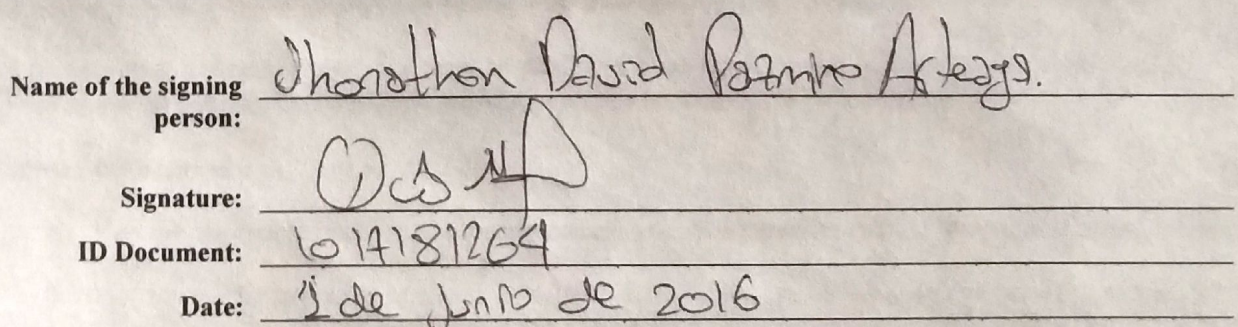 Name of the signing person: Jhonathon David Pazmino Arteaga.
Signature:
ID Document: 1014181264
Date: 1 de Junio de 2016